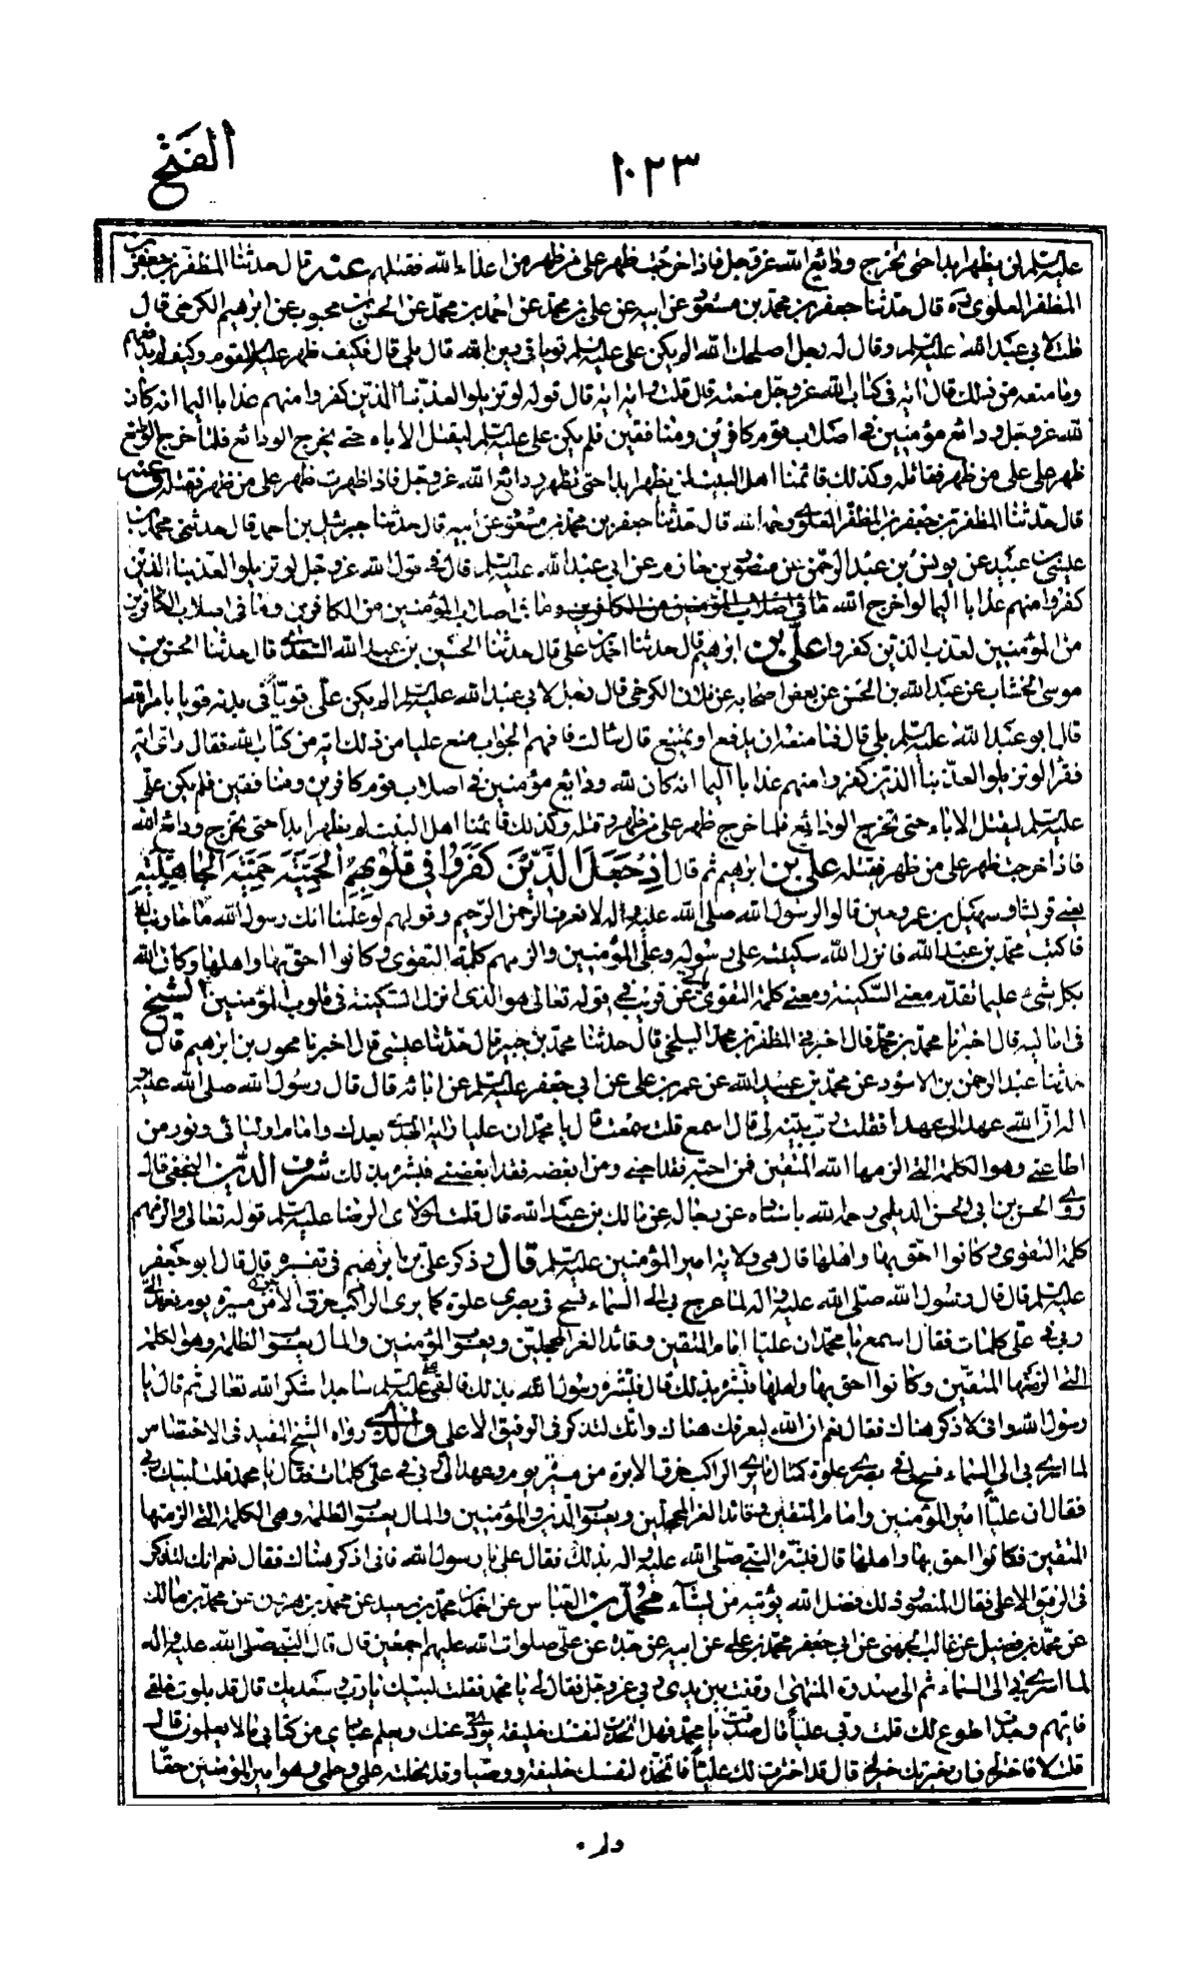 الفتح
١٠٢٣
عليه السلم لن يظهر ابدا حتى تخرج ودائع الله عز وجل فاذا خرجت ظهر على من ظهر من اعداء الله فقتلهم عنه قال حدثنا المظفر بن جعفر بن
المظفر العلوي ره قال حدثنا جعفر بن محمد بن مسعود عن ابيه عن علي بن محمد عن احمد بن محمد عن الحسن بن محبوب عن ابراهيم الكرخي قال
قلت لابي عبد الله عليه السلم وقال له رجل اصلحك الله الم يكن علي عليه السلم قويا في دين الله قال بلى قال فكيف ظهر عليه القوم وكيف لم يدفعهم
وما منعه من ذلك قال اية في كتاب الله عز وجل منعته قال قلت واية اية قال قوله لو تزيلوا لعذبنا الذين كفروا منهم عذابا اليما انه كان
لله عز وجل ودائع مؤمنين في اصلاب قوم كافرين ومنافقين فلم يكن علي عليه السلم ليقتل الاباء حتى يخرج الودائع فلما خرج الودائع
ظهر علي على من ظهر فقاتله وكذلك قائمنا اهل البيت لن يظهر ابدا حتى تظهر ودائع الله عز وجل فاذا ظهرت ظهر على من ظهر فقتله عنه
قال حدثنا المظفر بن جعفر بن المظفر العلوي رحمه الله قال حدثنا جعفر بن محمد بن مسعود عن ابيه قال حدثنا جبرئيل بن احمد قال حدثني محمد بن
عيسى بن عبيد عن يونس بن عبد الرحمن عن منصور بن حازم عن ابي عبد الله عليه السلم قال في قول الله عز وجل لو تزيلوا لعذبنا الذين
كفروا منهم عذابا اليما لو اخرج الله ما في اصلاب المؤمنين من الكافرين وما في اصلاب المؤمنين من الكافرين وما في اصلاب الكافرين
من المؤمنين لعذب الذين كفروا علي بن ابراهيم قال حدثنا احمد بن علي قال حدثنا الحسين بن عبد الله السعدي قال حدثنا الحسن بن
موسى الخشاب عن عبد الله بن الحسن عن بعض اصحابه عن فلان الكرخي قال رجل لابي عبد الله عليه السلم الم يكن علي قويا في بدنه قويا بامر الله
قال ابو عبد الله عليه السلم بلى قال فما منعه ان يدفع او يمتنع قال سالت فافهم الجواب منع عليا من ذلك اية من كتاب الله فقال واي اية
فقرا لو تزيلوا لعذبنا الذين كفروا منهم عذابا اليما انه كان لله ودائع مؤمنين في اصلاب قوم كافرين ومنافقين فلم يكن علي
عليه السلم ليقتل الاباء حتى تخرج الودائع فلما خرج ظهر على من ظهر وقتله وكذلك قائمنا اهل البيت لم يظهر ابدا حتى تخرج ودائع الله
فاذا خرجت ظهر على من ظهر فيقتله علي بن ابراهيم ثم قال اذ جعل الذين كفروا في قلوبهم الحمية حمية الجاهلية
يعني قريشا وسهيل بن عمرو حين قالوا لرسول الله صلى الله عليه واله لا نعرف الرحمن الرحيم وقولهم لو علمنا انك رسول الله ما حاربناك
فاكتب محمد بن عبد الله فانزل الله سكينته على رسوله وعلى المؤمنين والزمهم كلمة التقوى وكانوا احق بها واهلها وكان الله
بكل شئ عليما تقدم معنى السكينة ومعنى كلمة التقوى عن قريب في قوله تعالى هو الذي انزل السكينة في قلوب المؤمنين الشيخ
في اماليه قال اخبرنا محمد بن محمد قال اخبرني المظفر بن محمد البلخي قال حدثنا محمد بن جبير قال حدثنا عيسى قال اخبرنا محمود بن ابراهيم قال
حدثنا عبد الرحمن بن الاسود عن محمد بن عبيد الله عن عمر بن علي عن ابي جعفر عليه السلم عن ابائه قال قال رسول الله صلى الله عليه و
اله ان الله عهد الي عهدا فقلت رب بينه لي قال اسمع قلت سمعت قال يا محمد ان عليا راية الهدى بعدك وامام اوليائي ونور من
اطاعني وهو الكلمة التي الزمها الله المتقين فمن احبه فقد احبني ومن ابغضه فقد ابغضني فبشره بذلك شرف الدين النجفي قال
روى الحسن بن ابي الحسن الديلمي رحمه الله باسناده عن رجاله عن مالك بن عبد الله قال قلت لمولاي الرضا عليه السلم قوله تعالى والزمهم
كلمة التقوى وكانوا احق بها واهلها قال هي ولاية امير المؤمنين عليه السلم قال وذكر علي بن ابراهيم في تفسيره قال قال ابو جعفر
عليه السلم قال قال رسول الله صلى الله عليه واله لما عرج بي الى السماء فسح في بصري غلوة كما يرى الراكب خرق الابرة من مسيرة يوم فعهد الي
ربي في علي كلمات فقال اسمع يا محمد ان عليا امام المتقين وقائد الغر المحجلين ويعسوب المؤمنين والمال يعسوب الظلمة وهو الكلمة
التي الزمتها المتقين وكانوا احق بها واهلها فبشره بذلك قال فبشره رسول الله بذلك فالقى علي عليه السلم ساجدا شكر الله تعالى ثم قال يا
رسول الله واني لاذكر هناك فقال نعم ان الله ليعرفك هناك وانك لتذكر في الرفيق الاعلى والذي رواه الشيخ المفيد في الاختصاص
لما اسري بي الى السماء فسح لي في بصري غلوة كمثال ما يرى الراكب خرق الابرة من مسيرة يوم وعهد الي ربي في علي كلمات فقال يا محمد قلت لبيك ربي
فقال ان عليا امير المؤمنين وامام المتقين وقائد الغر المحجلين ويعسوب الدين والمؤمنين والمال يعسوب الظلمة وهي الكلمة التي الزمتها
المتقين فكانوا احق بها واهلها قال فبشره النبي صلى الله عليه واله بذلك فقال علي يا رسول الله فاني اذكر هناك فقال نعم انك لتذكر
في الرفيق الاعلى فقال المنصور ذلك فضل الله يؤتيه من يشاء محمد بن العباس عن احمد بن محمد بن سعيد عن محمد بن هرون عن محمد بن مالك
عن محمد بن فضيل عن غالب الجهني عن ابي جعفر محمد بن علي عن ابيه عن جده عن علي صلوات الله عليهم اجمعين قال قال النبي صلى الله عليه واله
لما اسري بي الى السماء ثم الى سدرة المنتهى اوقفت بين يدي ربي عز وجل فقال لي يا محمد فقلت لبيك يا رب وسعديك قال قد بلوت خلقي
فايهم وجدت اطوع لك قلت ربي عليا قال صدقت يا محمد فهل اتخذت لنفسك خليفة يؤدي عنك ويعلم عبادي من كتابي ما لا يعلمون قال
قلت لا فاختر لي فان خيرتك خير لي قال قد اخترت لك عليا فاتخذه لنفسك خليفة ووصيا وقد نحلته علمي وحلمي وهو امير المؤمنين حقا